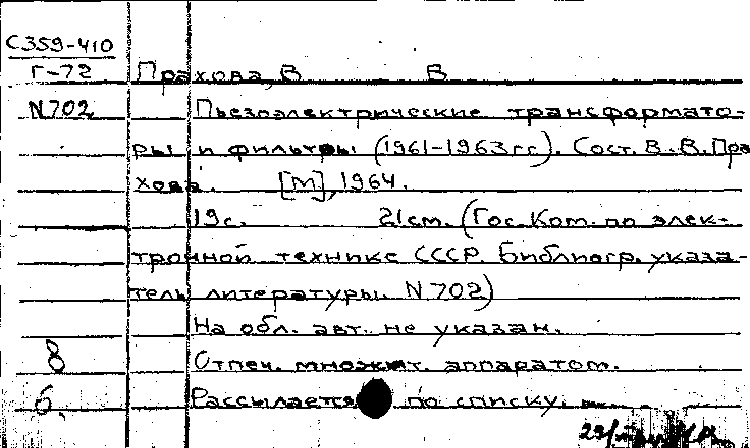 С359-410
Г-72 Прахова, В В
N702 Пьезоэлектрические трансформато-
ры и фильтры (1961-1963гг). Сост. В.В. Пра
хова. [М], 1964.
19с. 21см. (Гос. Ком. по элек-
тронной технике СССР. Библиогр. указа-
тель литературы. N 702)
На обл. авт. не указан.
8 Отпеч. множит. аппаратом.
б. Рассылается по списку.